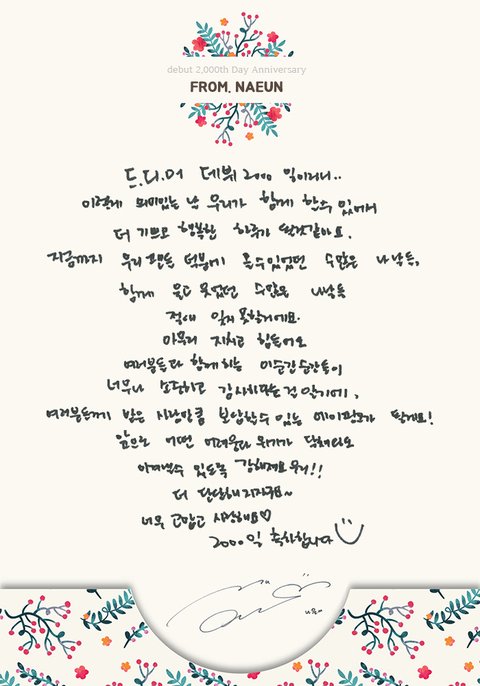 debut 2,000th Day Anniversary
FROM. NAEUN
드.디.어 데뷔 2000 일이라니..
이렇게 의미있는 날 우리가 함께 할수 있어서
더 기쁘고 행복한 하루가 될것같아요.
지금까지 우리 팬들 덕분에 올수있었던 수많은 나날들,
함께 울고 웃었던 수많은 나날들
절대 잊지 못할거에요.
아무리 지치고 힘들어도
여러분들과 함께하는 이순간순간들이
너무나 소중하고 감사하다는걸 알기에,
여러분들께 받은 사랑만큼 보답할수 있는 에이핑크가 될게요!
앞으로 어떤 어려움과 위기가 닥쳐와도
이겨낼수 있도록 강해져요 우리!!
더 단단해지자구요~
너무 고맙고 사랑해요♡
2000일 축하합니다